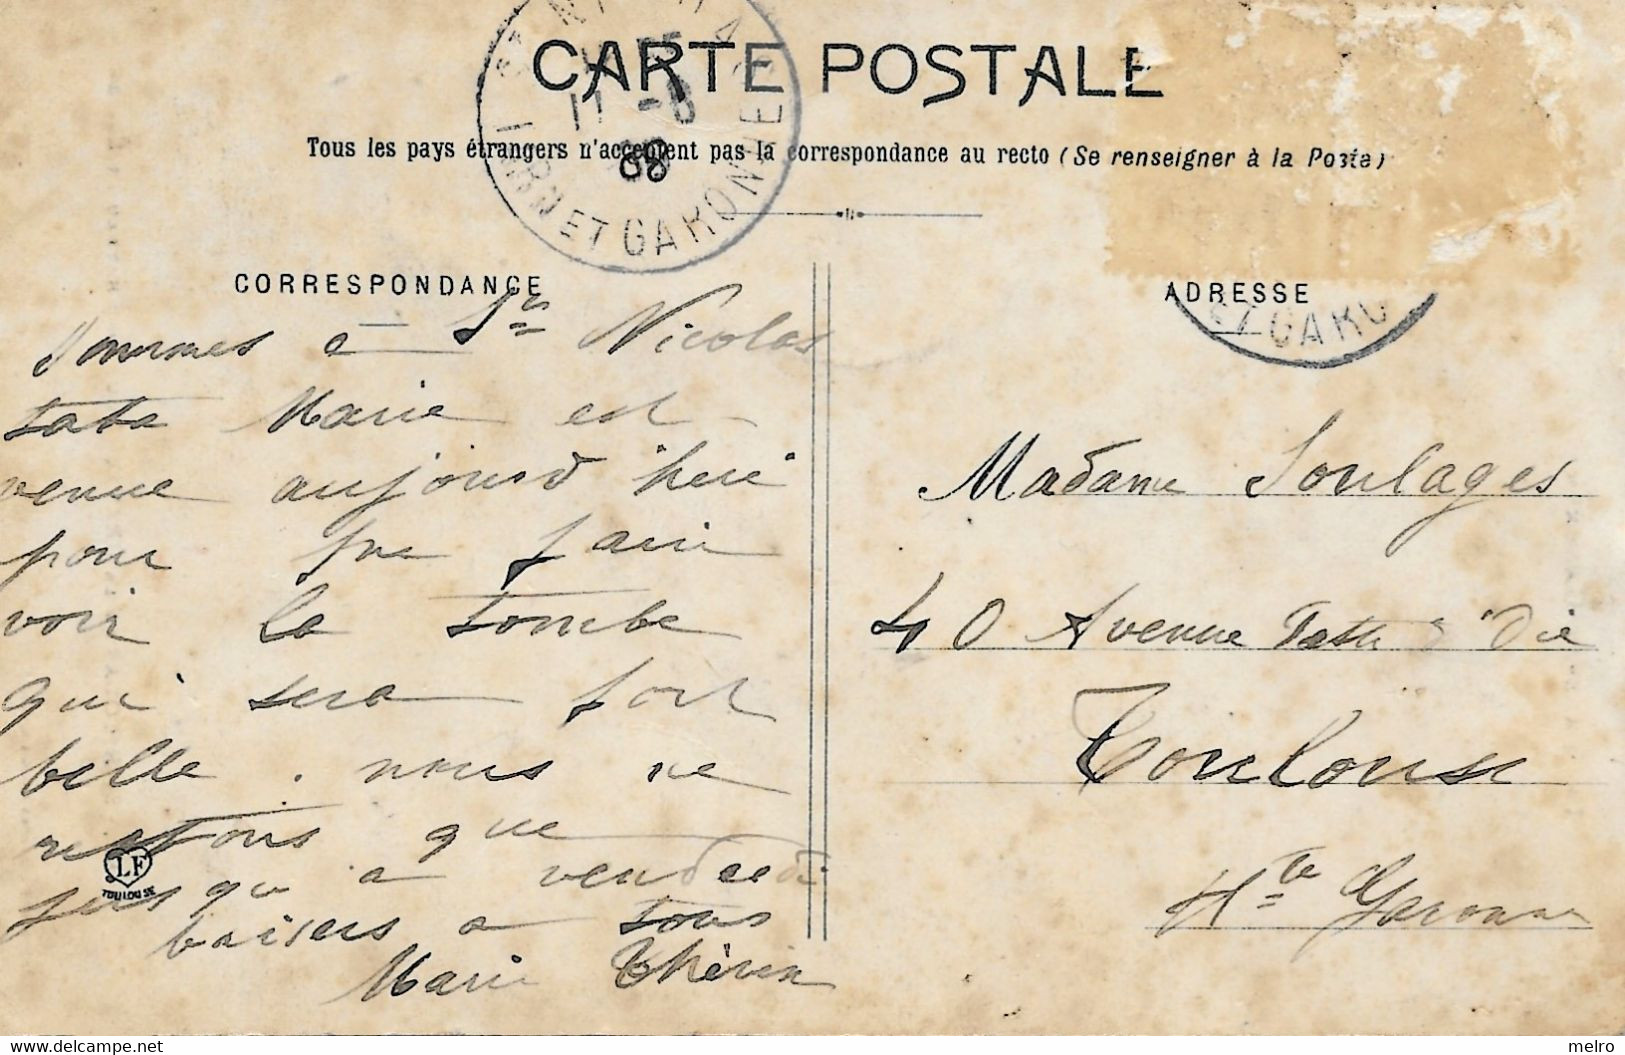 CARTE POSTALE
Tous les pays étrangers n'acceptent pas la correspondance au recto (Se renseigner à la Poste)
11 -8
08
TARN ET GARONNE
CORRESPONDANCE
ADRESSE
ET GARO
Sommes a St Nicolas
tata Marie est
venue aujourd'hui
pour faire
voir la tombe
qui sera fort
belle. nous ne
restons que
jusqu a vendredi
baisers a tous
Marie
LF
TOULOUSE
Madame Soulages
40 Avenue
Toulouse
Hte Garonne
delcampe.net
melro